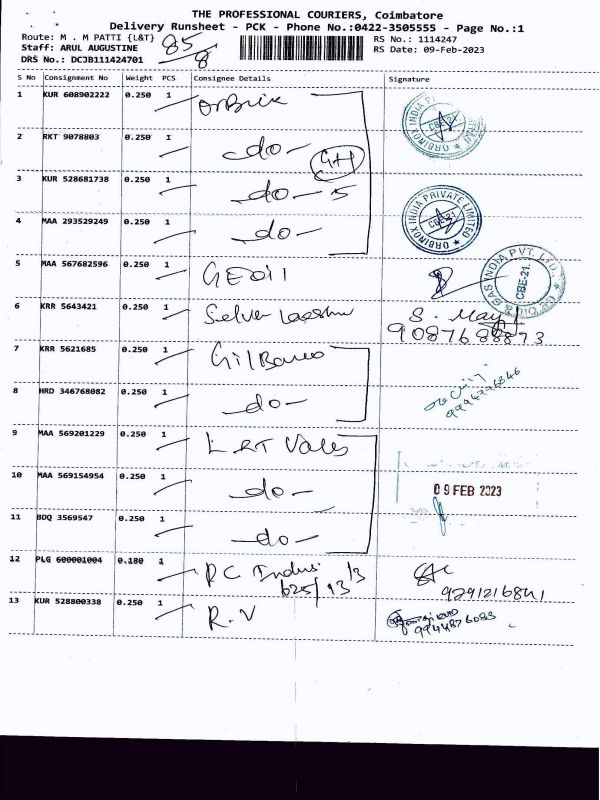 THE PROFESSIONAL COURIERS, Coimbatore
Delivery Runsheet - PCK - Phone No.:0422-3505555 - Page No.:1
Route: M . M PATTI {L&T} 85/8 RS No.: 1114247
Staff: ARUL AUGUSTINE RS Date: 09-Feb-2023
DRS No.: DCJB111424701
S No Consignment No Weight PCS Consignee Details Signature
1 KUR 608902222 0.250 1
ORBINOX INDIA PRIVATE LIMITED CBE-21
2 RKT 9078803 0.250 1 -do-
3 KUR 528681738 0.250 1 -do- 5
4 MAA 293529249 0.250 1 -do-
ORBINOX INDIA PRIVATE LIMITED CBE-21
5 MAA 567682596 0.250 1 GEOil
GAS INDIA PVT. LTD. CBE-21.
6 KRR 5643421 0.250 1 Selva S. May
9087688873
7 KRR 5621685 0.250 1 Gilbarco
8 HRD 346768082 0.250 1 -do-
9 MAA 569201229 0.250 1 L&T Valves
10 MAA 569154954 0.250 1 -do-
09 FEB 2023
11 BDQ 3569547 0.250 1 -do-
12 PLG 600001004 0.180 1 P.C Indus
625/13/3
9791216841
13 KUR 528800338 0.250 1 R.V
9944876083